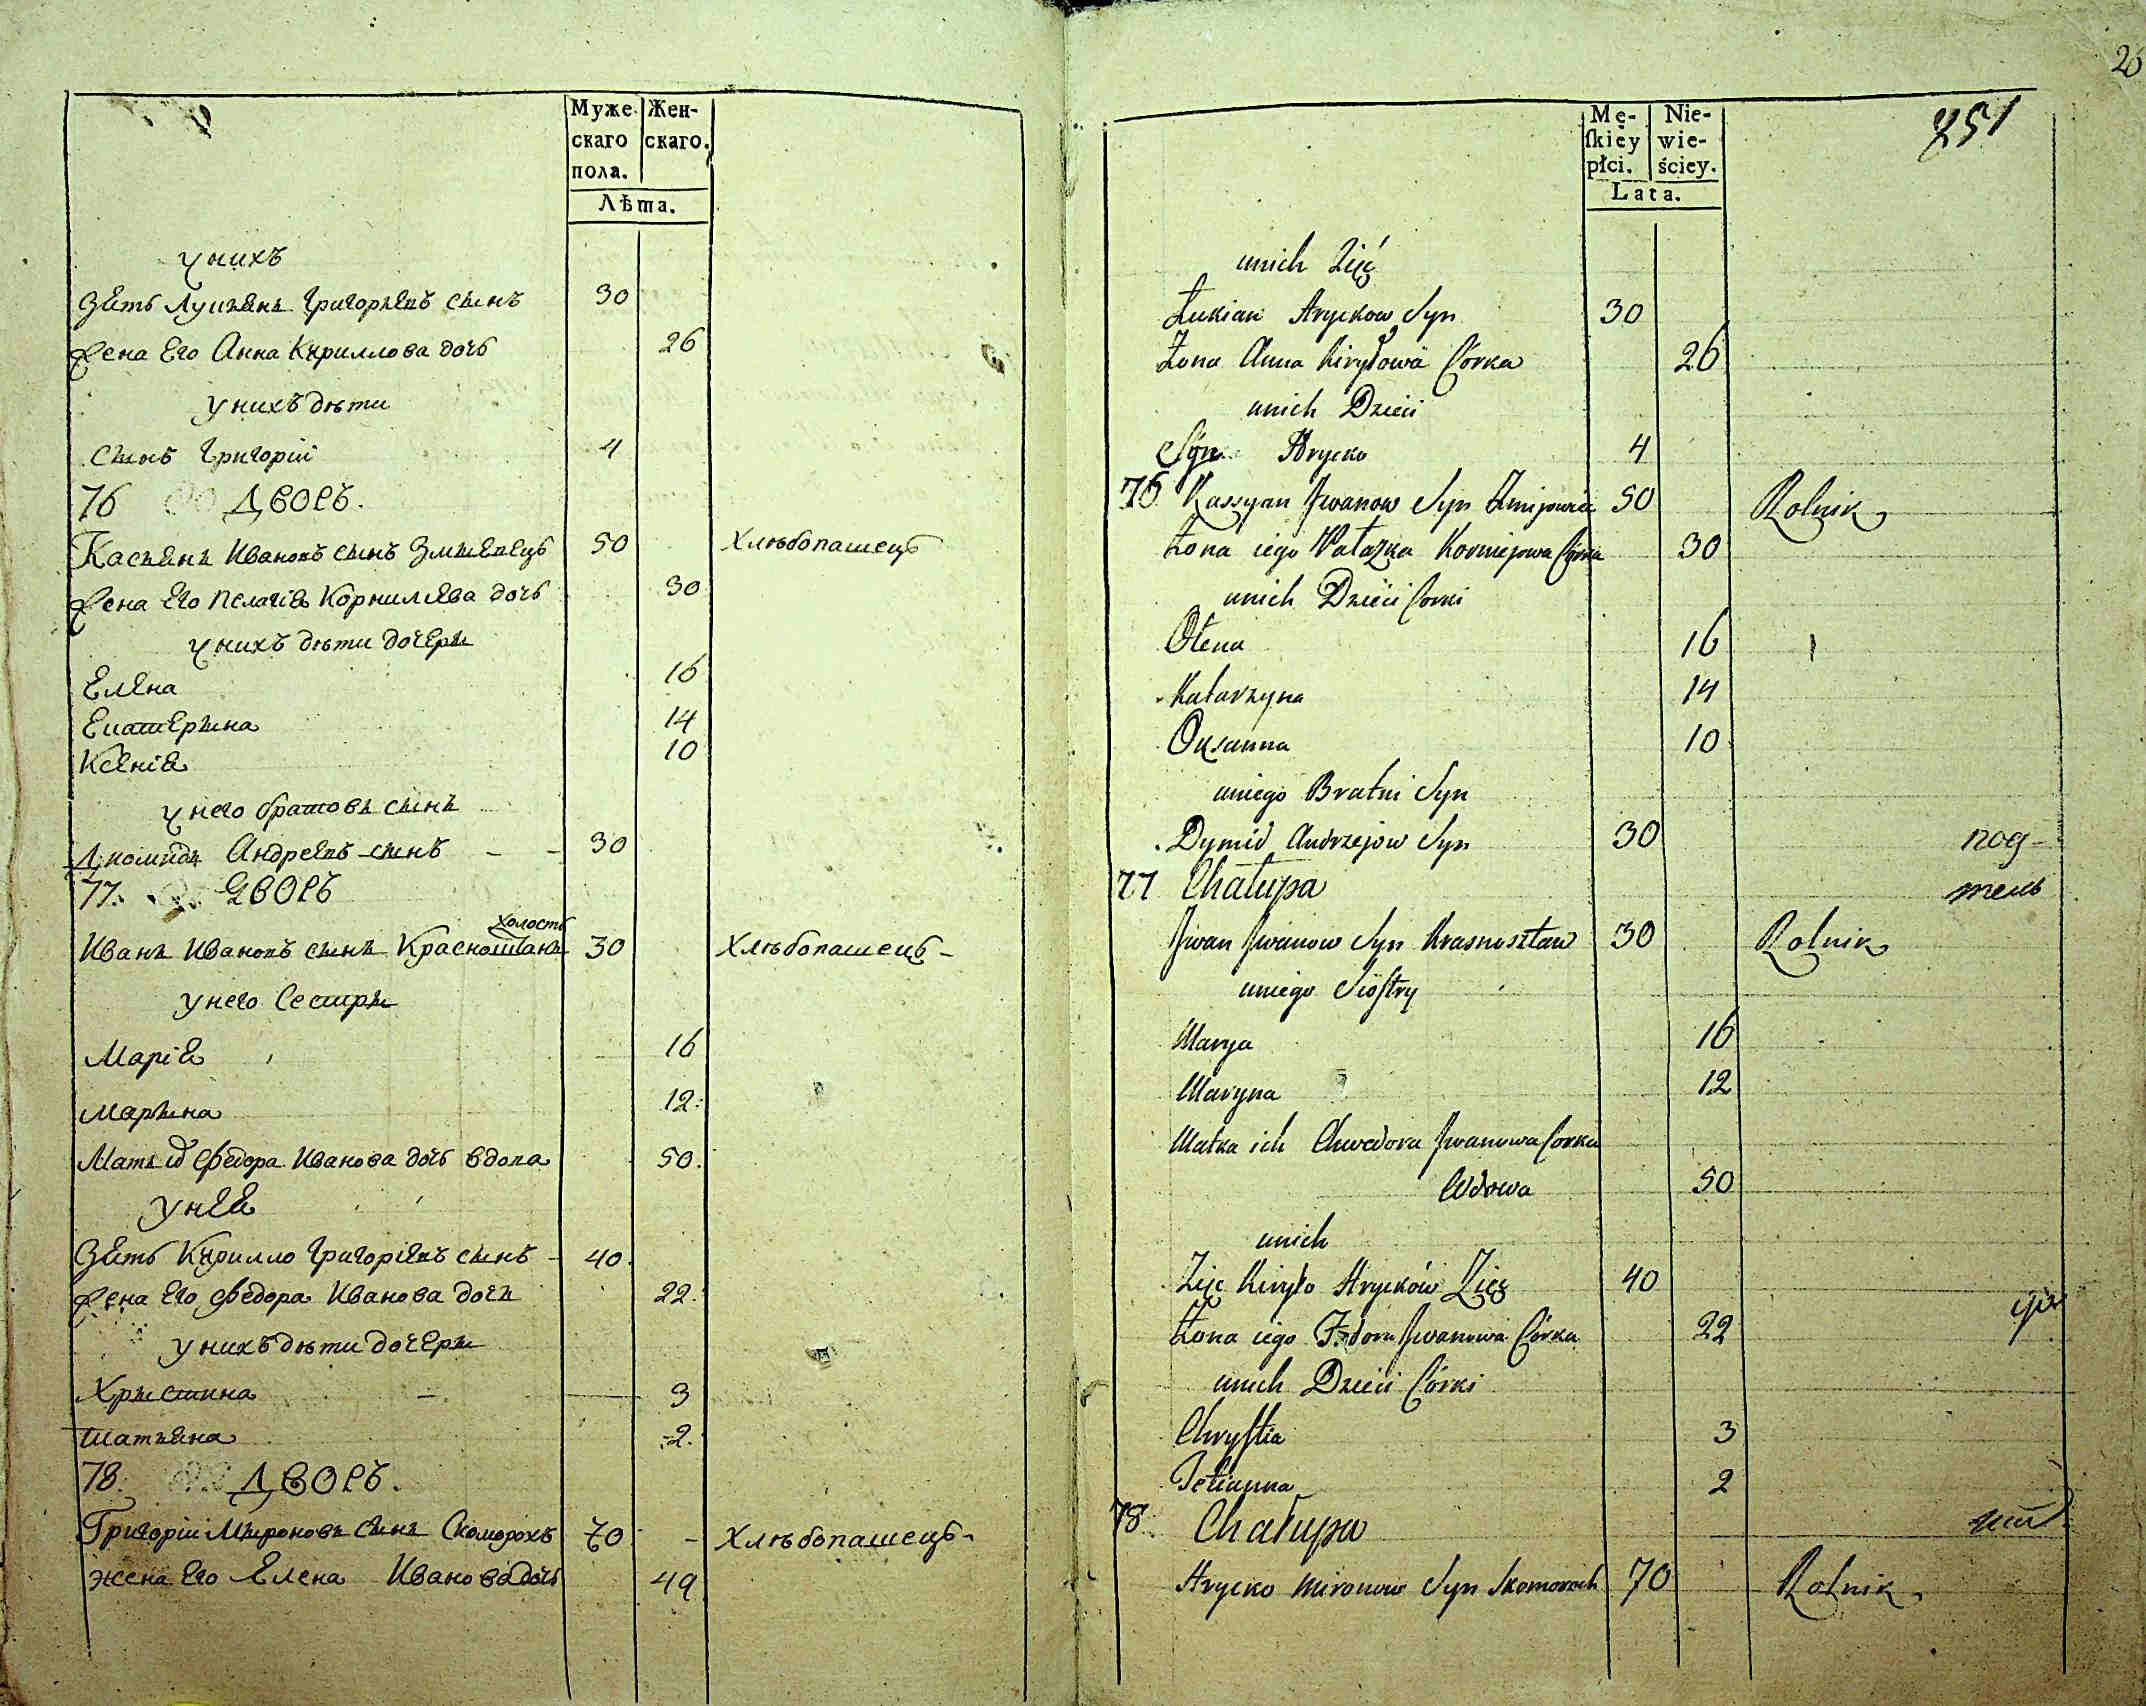 Муже
скаго
пола.
Жен-
скаго.
Лѣта.
у нихъ
Зять Лукьянъ Григорьевъ сынъ 30
Жена Его Анна Кириллова дочь 26
у нихъ дѣти
сынъ Григорій 4
76 Дворъ.
Касьянъ Ивановъ сынъ Змѣевецъ 50 Хлѣбопашецъ
Жена Его Пелагія Корнилѣва дочь 30
у нихъ дѣти дочери
Елена 16
Екатерина 14
Ксенія 10
у него братовъ сынъ
Диомидъ Андреевъ сынъ - - 30
77. Дворъ
холостъ
Иванъ Ивановъ сынъ Красноштанъ 30 Хлѣбопашецъ -
у него Сестры
Марія 16
Марына 12.
Мать ихъ Федора Иванова дочь вдова 50.
у нея
Зять Кирилло Григоріевъ сынъ - 40.
Жена Его Федора Иванова дочь 22.
у нихъ дѣти дочери
Христина - 3
Татьяна 2.
78. Дворъ.
Григорій Мироновъ сынъ Скоморохъ 70 - Хлѣбопашецъ -
жена Его Елена Иванова дочь 49
26
251
Mę-
skiey
płci.
Nie-
wie-
ściey.
Lata.
unich Zięć
Łukian Hryckow Syn 30
Żona Anna Kiryłowa Córka 26
unich Dzieci
Syn Hrycko 4
76 Kassyan Jwanow Syn Zmijowiec 50 Rolnik
Żona iego Pałazka Korniejowa Córka 30
unich Dzieci Corki
Ołena 16
Katarzyna 14
Oxanna 10
uniego Bratni Syn
Dymid Andrzejow Syn 30
под-
77 Chałupa
тель
Jwan Jwanow Syn Krasnosztan 30 Rolnik
uniego Siostry
Marya 16
Maryna 12
Matka ich Chwedora Jwanowa Corka
Wdowa 50
unich
Zięć Kiryło Hrycków Zięć 40
Żona iego Fedora Jwanowa Córka 22
unich Dzieci Córki
Chrystia 3
Tetianna 2
78 Chałupa
Hrycko Mironow Syn Skomoroch 70 Rolnik